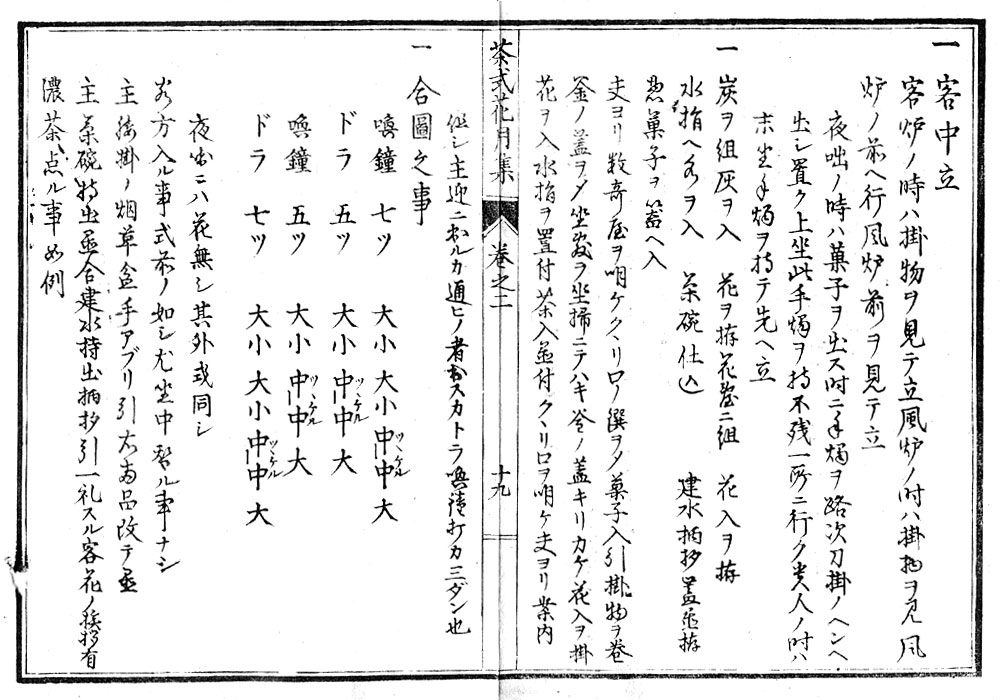 一 客中立
客炉ノ時ハ掛物ヲ見テ立風炉ノ时ハ掛物ヲ見風
炉ノ前ヘ行風炉前ヲ見テ立
夜咄ノ時ハ菓子ヲ出ス时ニ手燭ヲ路次刀掛ノヘンヘ
出シ置ク上坐此手燭ヲ持不残一所ニ行ク貴人ノ时ハ
末坐手燭ヲ持テ先ヘ立
一 炭ヲ組灰ヲ入 花ヲ拵花臺ニ組 花入ヲ拵
水指ヘ水ヲ入 茶碗仕込 建水柄杓蓋置拵
惣菓子ヲ蓋ヘ入
夫ヨリ数奇屋ヲ明ケクヽリ口ノ ヲメ菓子入引掛物ヲ巻
釜ノ蓋ヲメ坐敷ヲ坐掃ニテハキ釜ノ蓋キリカケ花入ヲ掛
花ヲ入水指ヲ置付茶入置付クヽリ口ヲ明ケ夫ヨリ案内
茶式花月集 巻之二 十九
但シ主迎ニ出ルカ通ヒノ者出スカトラ喚鐘打カ三ダン也
一 合圖之事
喚鐘 七ツ 大小 大小 中中 大 ツヾケル
ドラ 五ツ 大小 中中 大 ツヾケル
喚鐘 五ツ 大小 中中 大 ツヾケル
ドラ 七ツ 大小 大小 中中 大 ツヾケル
夜出ニハ花無シ其外或同シ
客方入ル事式前ノ如シ尤坐中 ル事ナシ
主 掛ノ烟草盆手アブリ引 品改テ置
主茶碗持出置合建水持出柄杓引一礼スル客花ノ挨拶有
濃茶点ル事如例